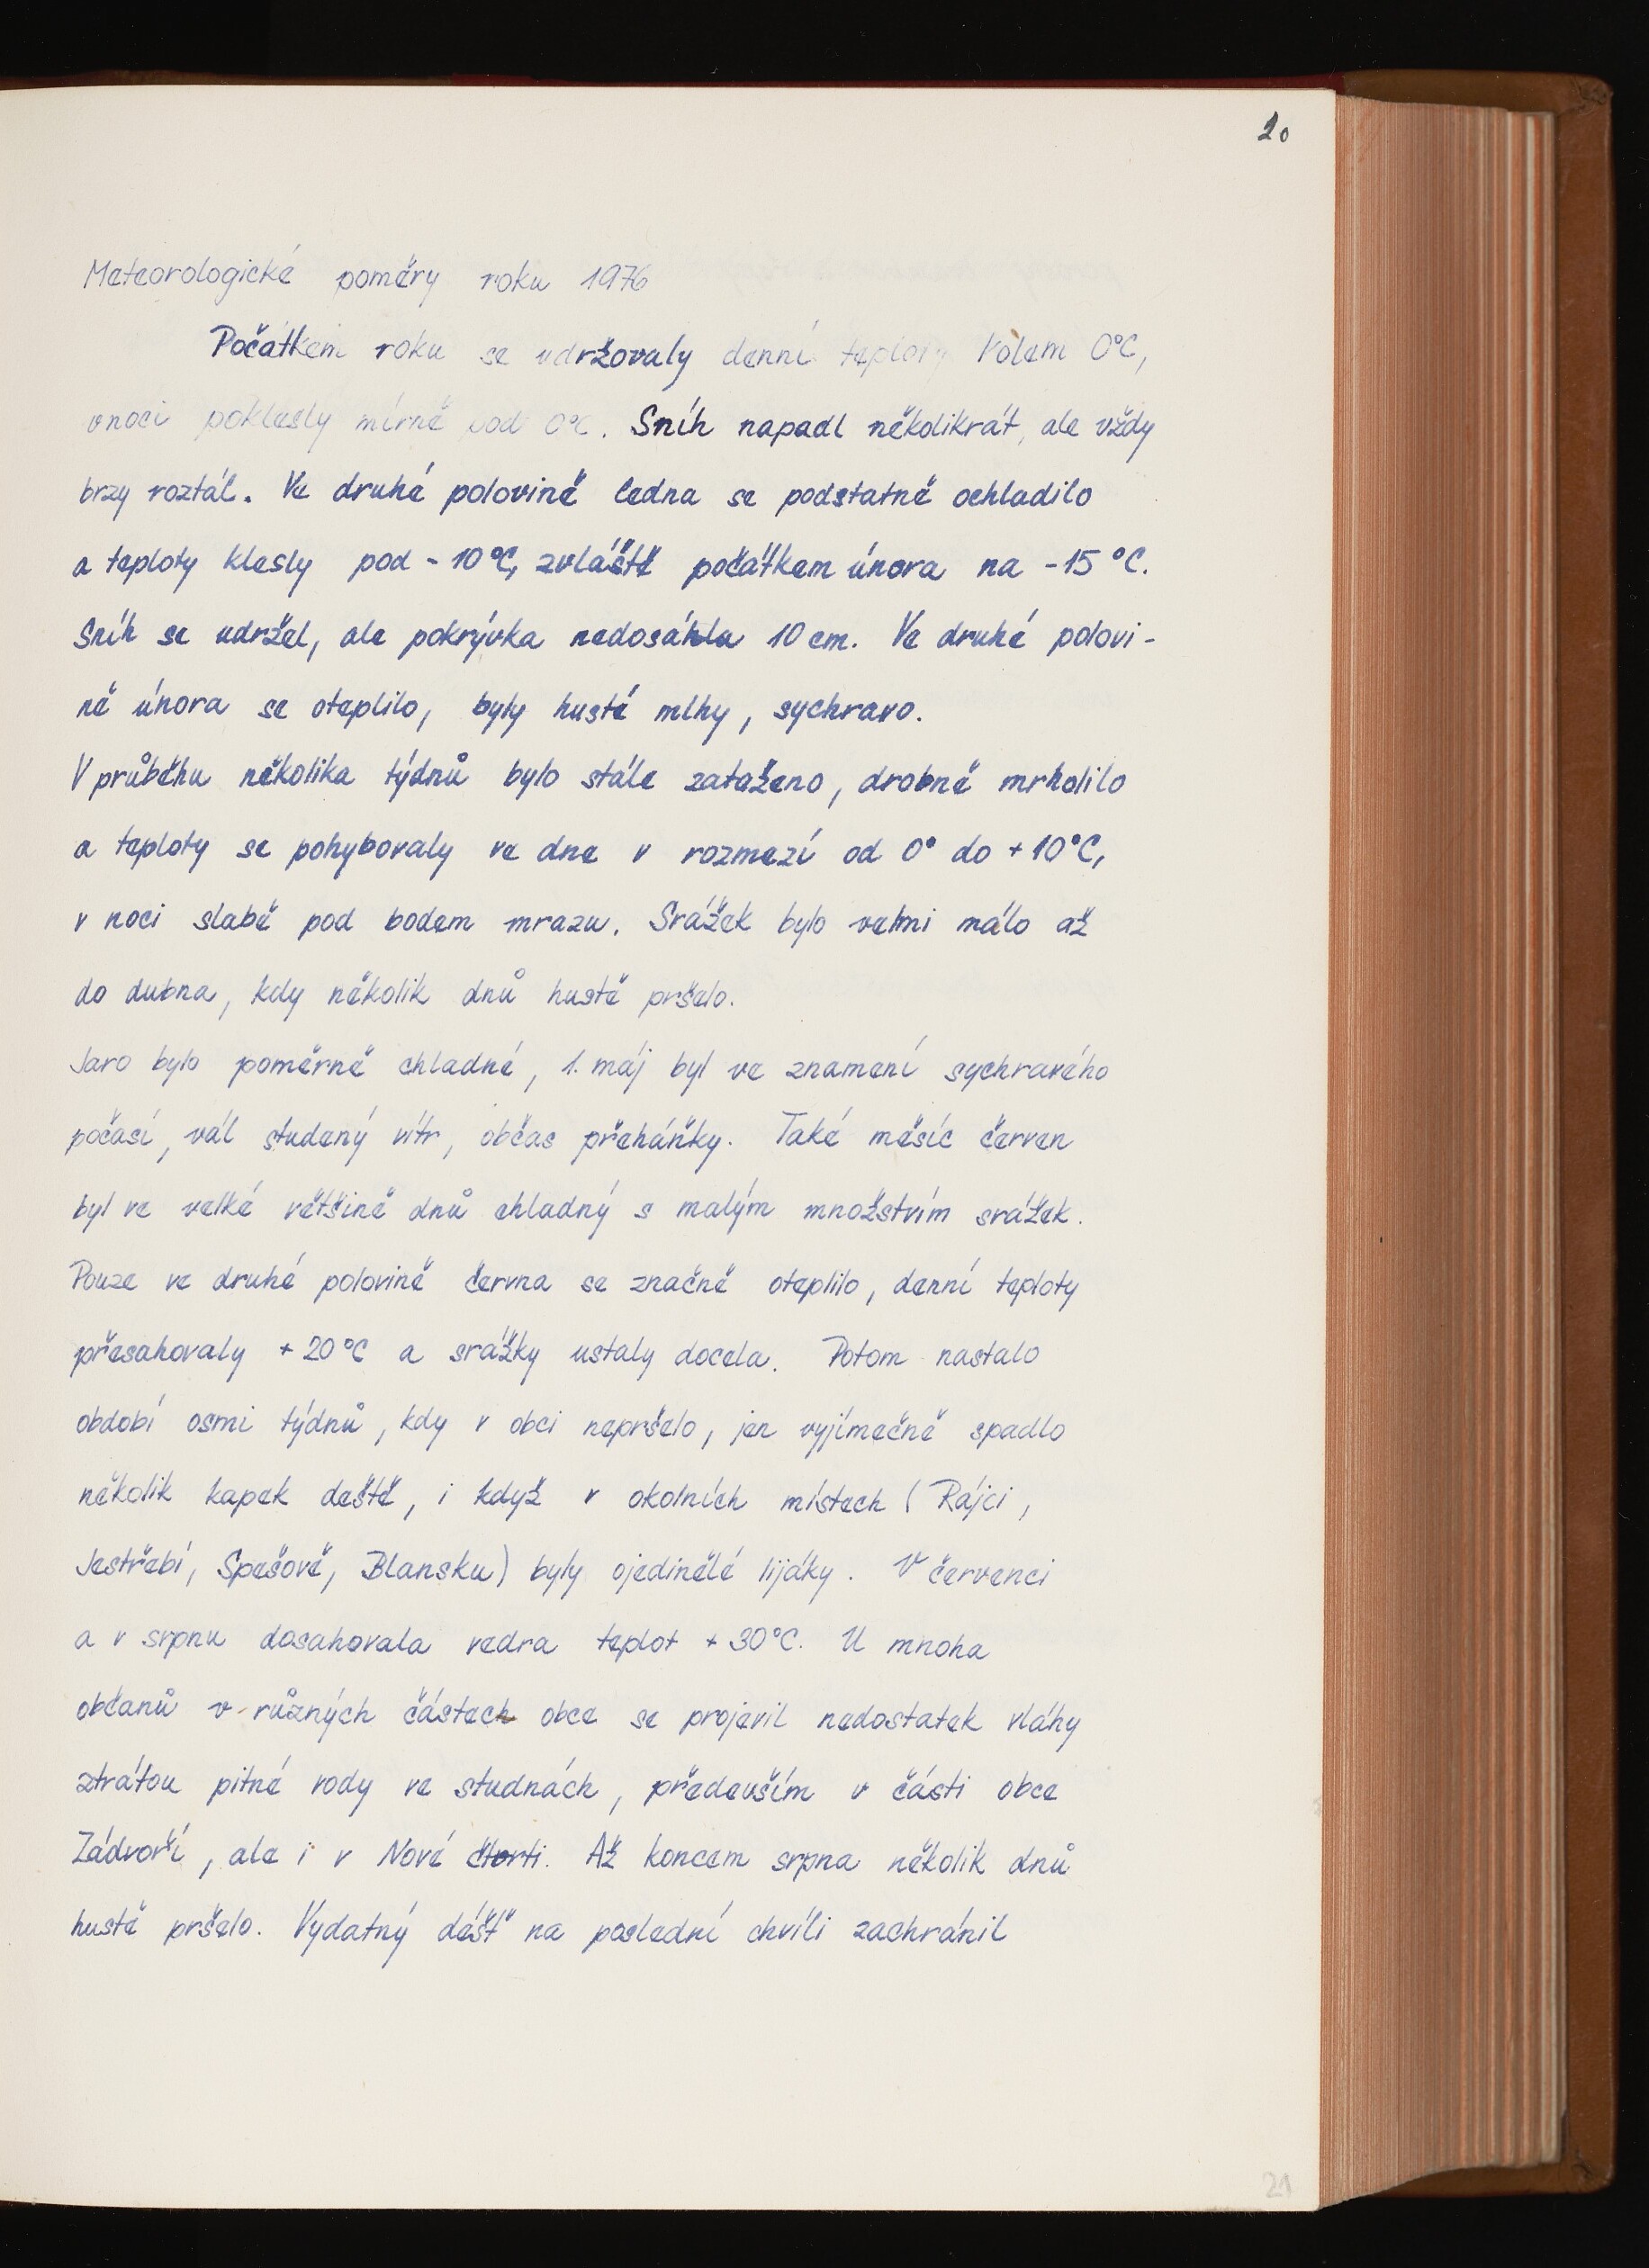 20
Meteorologické poměry roku 1976
Počátkem roku se udržovaly denní teploty kolem 0°C,
vnoci poklesly mírně pod 0°C. Sníh napadl několikrát, ale vždy
brzy roztál. Ve druhé polovině ledna se podstatně ochladilo
a teploty klesly pod -10°C, zvláště počátkem února na -15°C.
Sníh se udržel, ale pokrývka nedosáhla 10 cm. Ve druhé polovi-
ně února se oteplilo, byly husté mlhy, sychravo.
V průběhu několika týdnů bylo stále zataženo, drobně mrholilo
a teploty se pohybovaly ve dne v rozmezí od 0° do +10°C,
v noci slabě pod bodem mrazu. Srážek bylo velmi málo až
do dubna, kdy několik dnů hustě pršelo.
Jaro bylo poměrně chladné, 1. máj byl ve znamení sychravého
počasí, vál studený vítr, občas přeháňky. Také měsíc červen
byl ve velké většině dnů chladný s malým množstvím srážek.
Pouze ve druhé polovině června se značně oteplilo, denní teploty
přesahovaly +20°C a srážky ustaly docela. Potom nastalo
období osmi týdnů, kdy v obci nepršelo, jen vyjímečně spadlo
několik kapek deště, i když v okolních místech (Rájci,
Jestřebí, Spešově, Blansku) byly ojedinělé lijáky. V červenci
a v srpnu dosahovala vedra teplot +30°C. U mnoha
občanů v různých částech obce se projevil nedostatek vláhy
ztrátou pitné vody ve studnách, především v části obce
Zádvoří, ale i v Nové čtvrti. Až koncem srpna několik dnů
hustě pršelo. Vydatný déšť na poslední chvíli zachránil
21